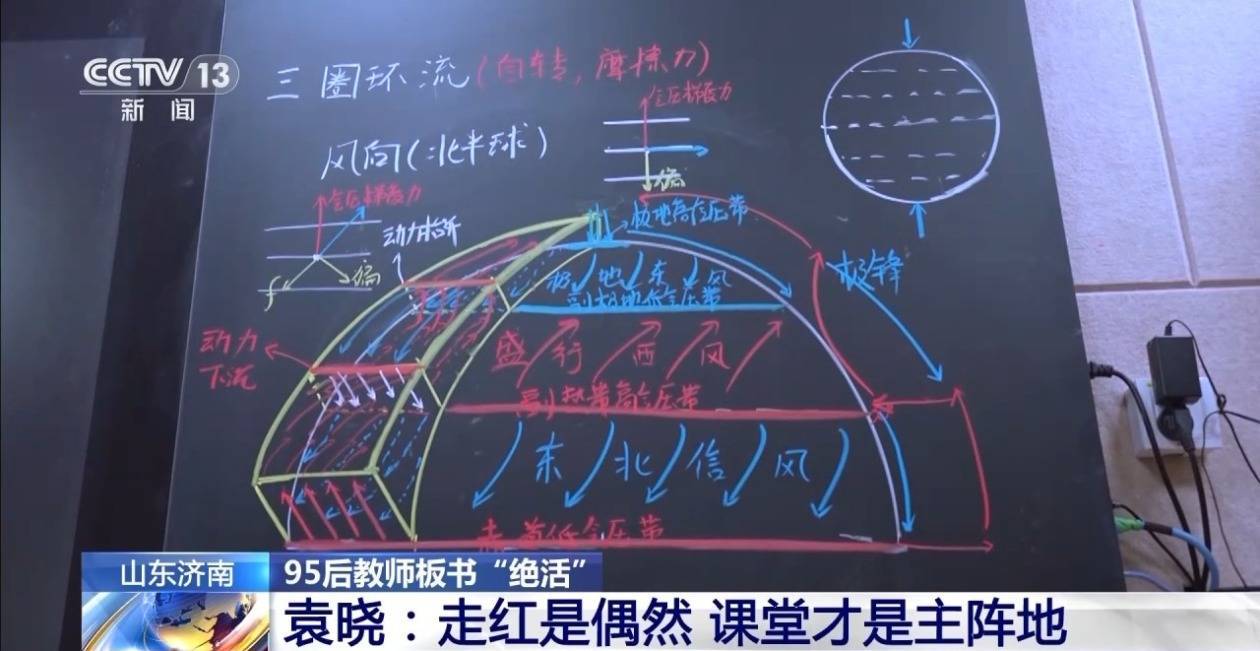 CCTV 13
新闻
三圈环流(自转,摩擦力)
风向(北半球)
气压梯度力
偏
气压梯度力
偏
f
动力抬升
极地高气压带
极地东风
副极地低气压带
极锋
动力
下沉
盛行西风
副热带高气压带
东北信风
赤道低气压带
山东济南
95后教师板书“绝活”
袁晓：走红是偶然 课堂才是主阵地